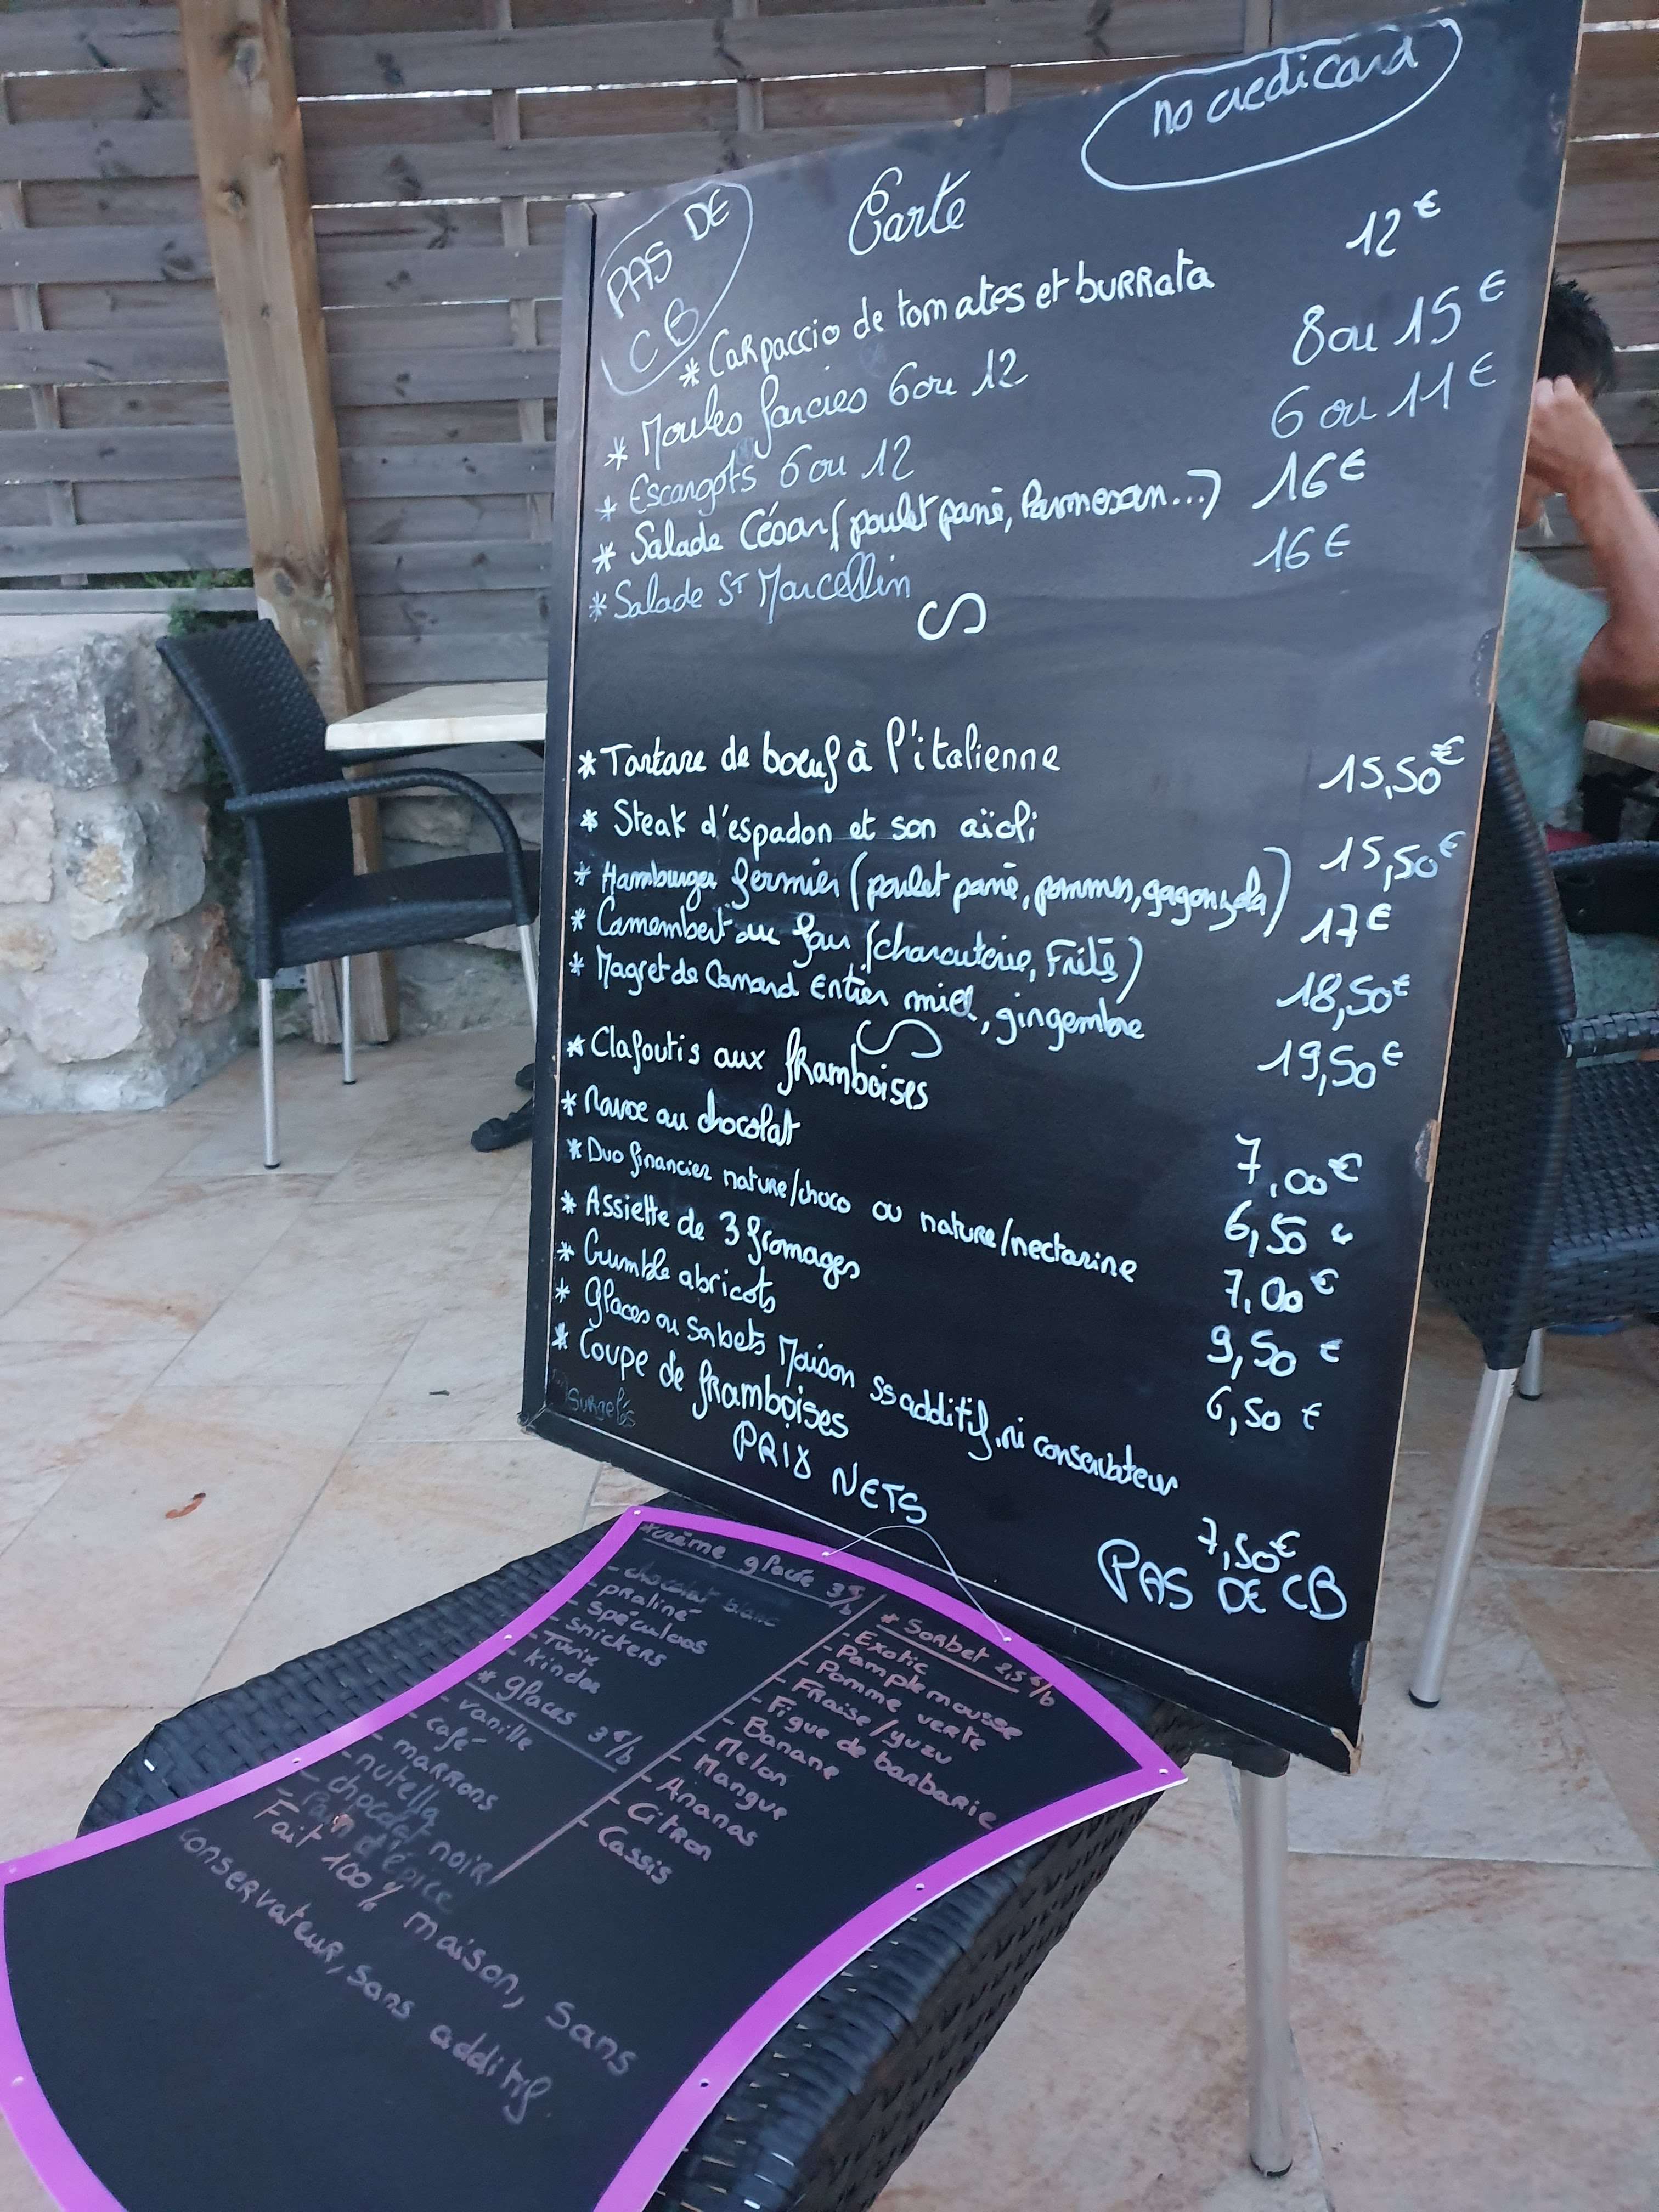 no credicard
PAS DE
CB
Carte
* Carpaccio de tomates et burrata 12€
* Moules farcies 6 ou 12 8 ou 15€
* Escargots 6 ou 12 6 ou 11€
* Salade César (poulet pané, Parmesan...) 16€
* Salade St Marcellin 16€
* Tartare de bœuf à l'italienne 15,50€
* Steak d'espadon et son aïoli 15,50€
* Hamburger fermier (poulet pané, pommes, gagonzola) 17€
* Camembert au four (charcuterie, Frites) 18,50€
* Magret de Canard Entier miel, gingembre 19,50€
* Clafoutis aux framboises 7,00€
* au chocolat 6,50 €
* Duo financier nature/choco ou nature/nectarine 7,00€
* Assiette de 3 fromages 9,50 €
* Crumble abricots 6,50 €
* Glaces ou Sorbets Maison ss additif, ni conservateur
* Coupe de framboises 7,50€
surgelés
PRIX NETS
PAS DE CB
* crème glacée 3€/b
- chocolat blanc
- praliné
- spéculoos
- snickers
- Twix
- kinder
* glaces 3€/b
- vanille
- café
- marrons
- nutella
- chocolat noir
- Pain d'épice
* Sorbet 2,5€/b
- Exotic
- Pamplemousse
- Pomme verte
- Fraise/yuzu
- Figue de barbarie
- Banane
- Melon
- Mangue
- Ananas
- Citron
- Cassis
Fait 100% maison, sans
conservateur, sans additif